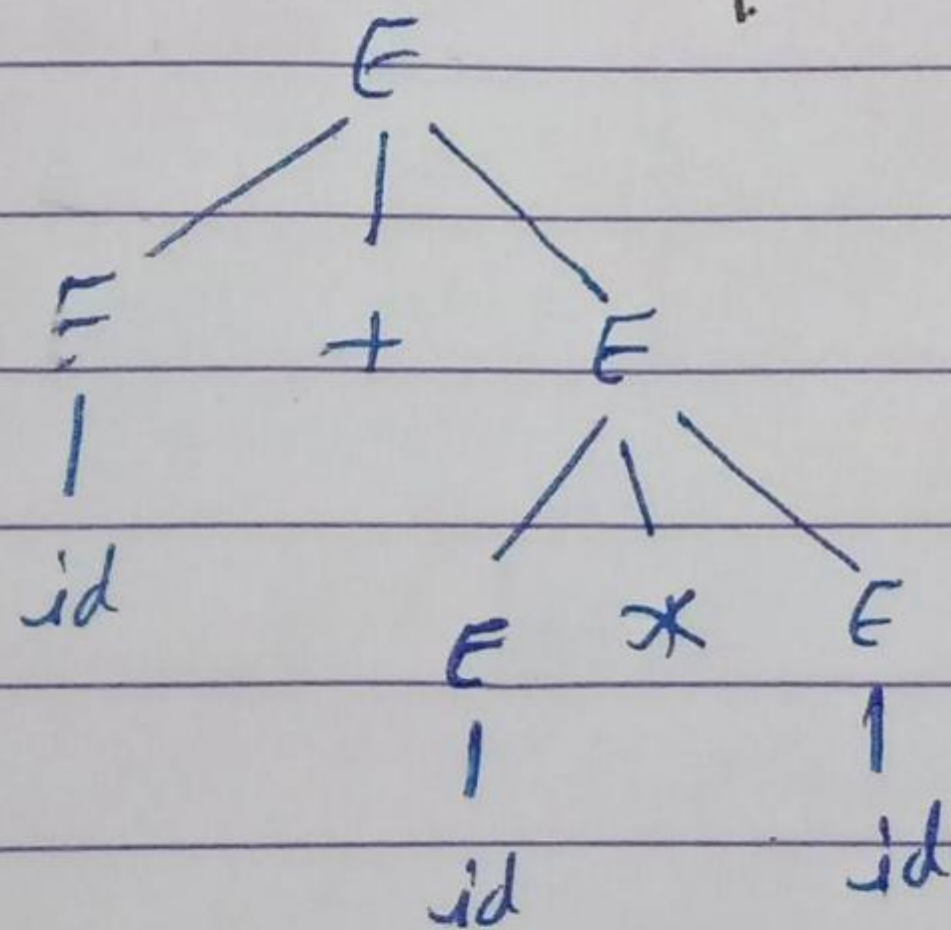 E
E + E
id
E * E
id id